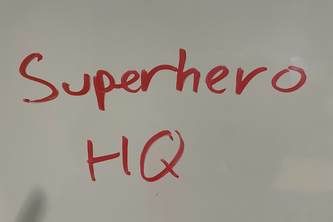 Superhero
HQ